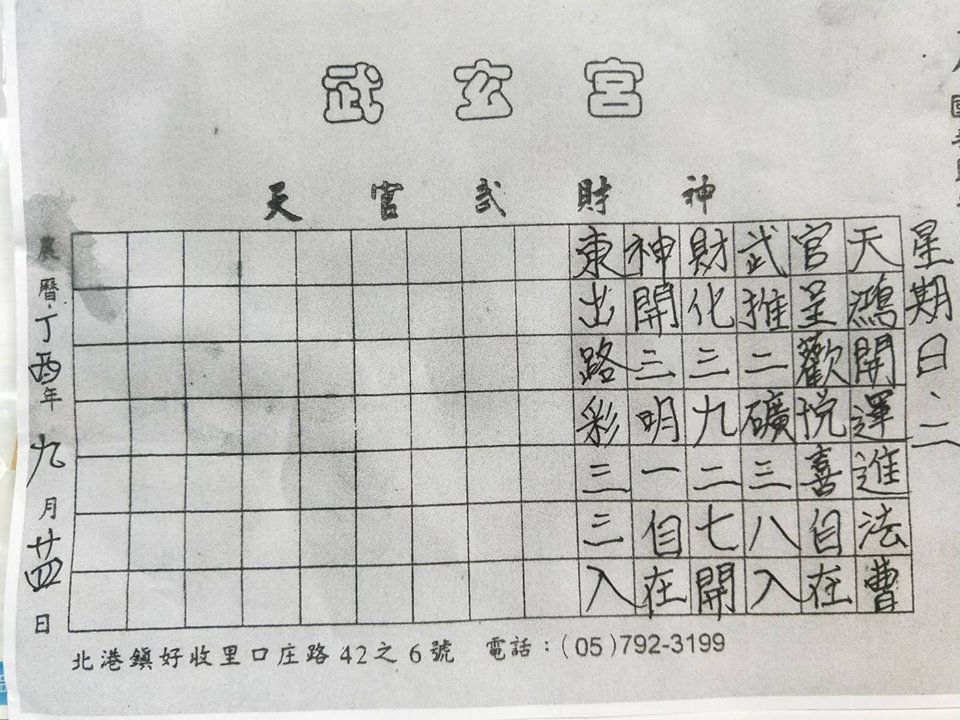 武玄宮
天官武財神
星期日、二
天鴻開運進法曹
官呈歡悅喜自在
武推二礦三八入
財化三九二七開
神開三明一自在
東出路彩三三入
農曆丁酉年九月廿四日
北港鎮好收里口庄路42之6號 電話：(05)792-3199